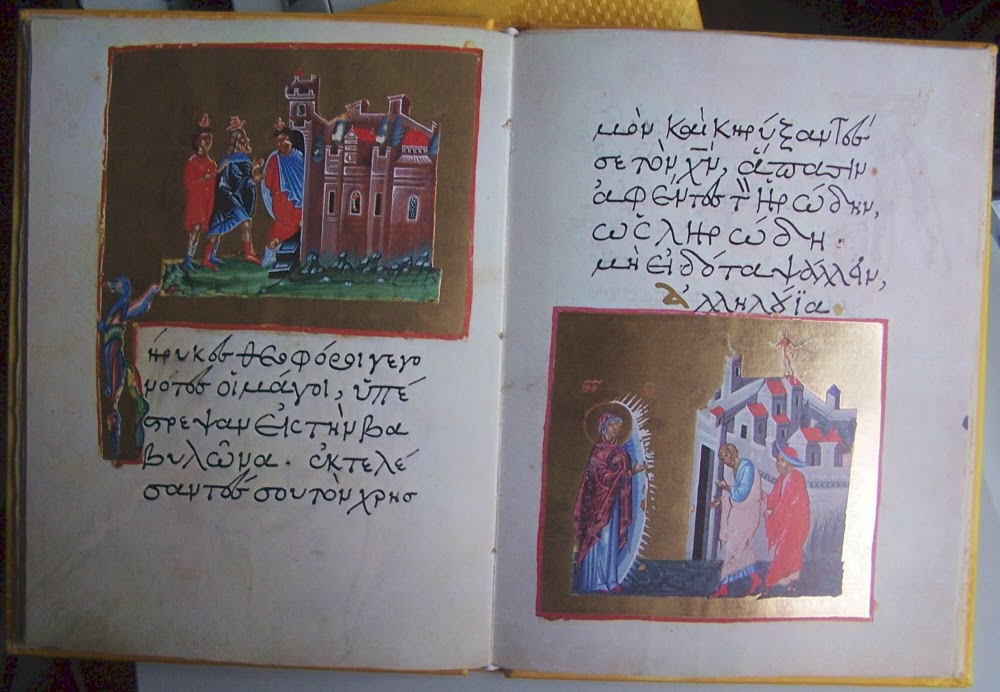 Κήρυκες θεοφόροι γεγο
νότες οἱ μάγοι, ὑπέ
στρεψαν εἰς τὴν βα
βυλῶνα · ἐκτελέ
σαντές σου τὸν χρησ
μὸν καὶ κηρύξαντές
σε τὸν χ̅ν̅, ἅπασιν
ἀφέντες τὸν ἡρώδην,
ὡς ληρώδη ·
μὴ εἰδότα ψάλλειν,
ἀλληλούϊα